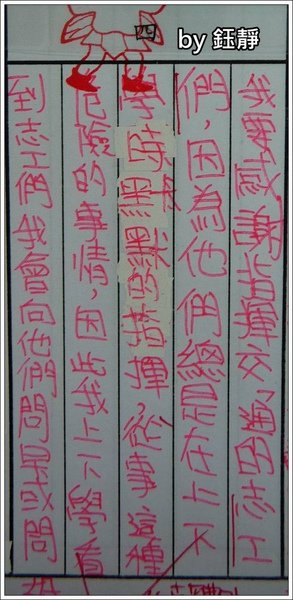 四
by 鈺靜
我要感謝指揮交通的志工
們，因為他們總是在上下
學時默默的指揮，從事這種
危險的事情，因此我上下學看
到志工們我會向他們問早或問